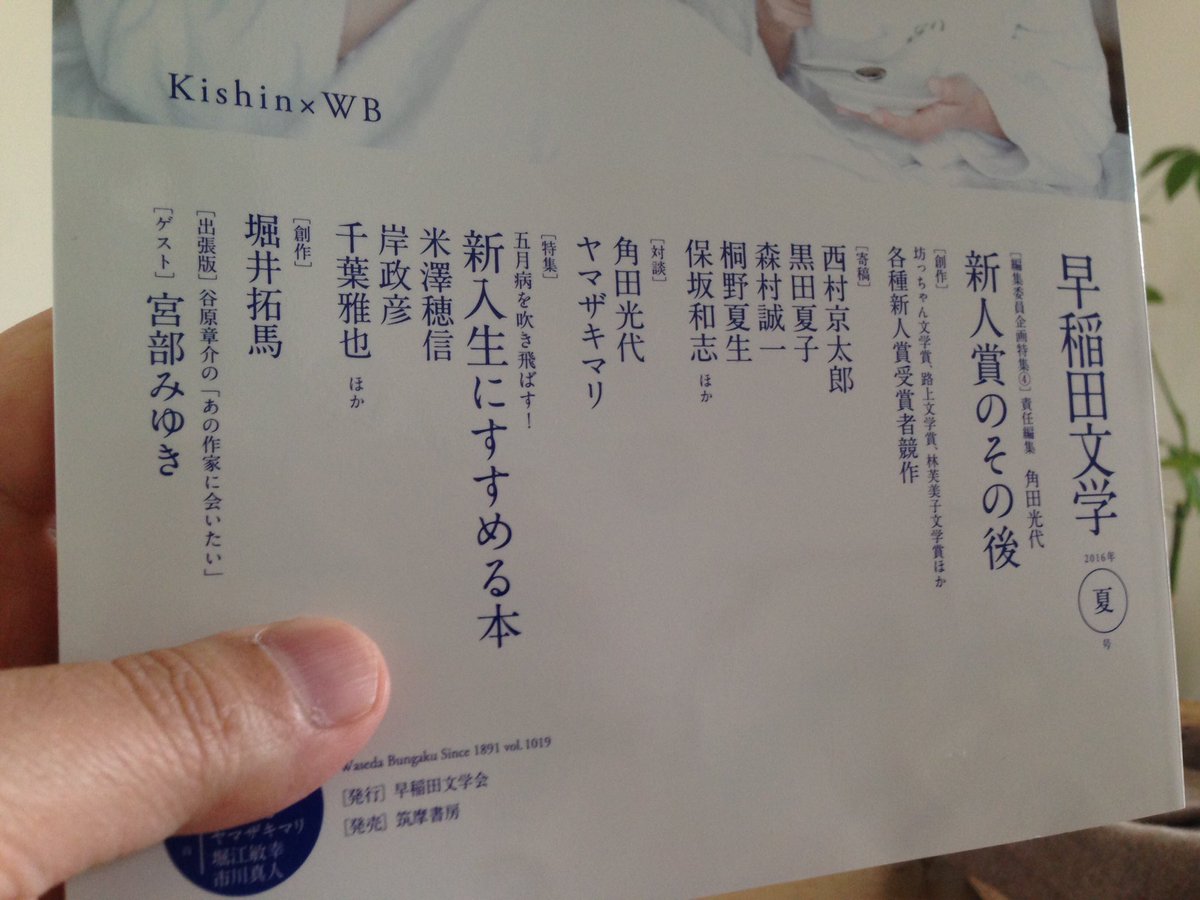 Kishin×WB
早稲田文学
2016年
夏
号
[編集委員企画特集④] 責任編集 角田光代
新人賞のその後
[創作]
坊っちゃん文学賞、路上文学賞、林芙美子文学賞ほか
各種新人賞受賞者競作
[寄稿]
西村京太郎
黒田夏子
森村誠一
桐野夏生
保坂和志 ほか
[対談]
角田光代
ヤマザキマリ
[特集]
五月病を吹き飛ばす!
新入生にすすめる本
米澤穂信
岸政彦
千葉雅也 ほか
[創作]
堀井拓馬
[出張版] 谷原章介の「あの作家に会いたい」
[ゲスト] 宮部みゆき
Waseda Bungaku Since 1891 vol. 1019
[発行] 早稲田文学会
[発売] 筑摩書房
ヤマザキマリ
堀江敏幸
市川真人